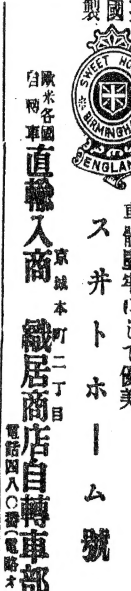 國製
SWEET HO
BIRMINGH
ENGLAND
して優美
ス井トホーム號
歐米各國
自轉車
直輸入商
京城本町二丁目
織居商店自轉車部
電話四八〇番(電略オ